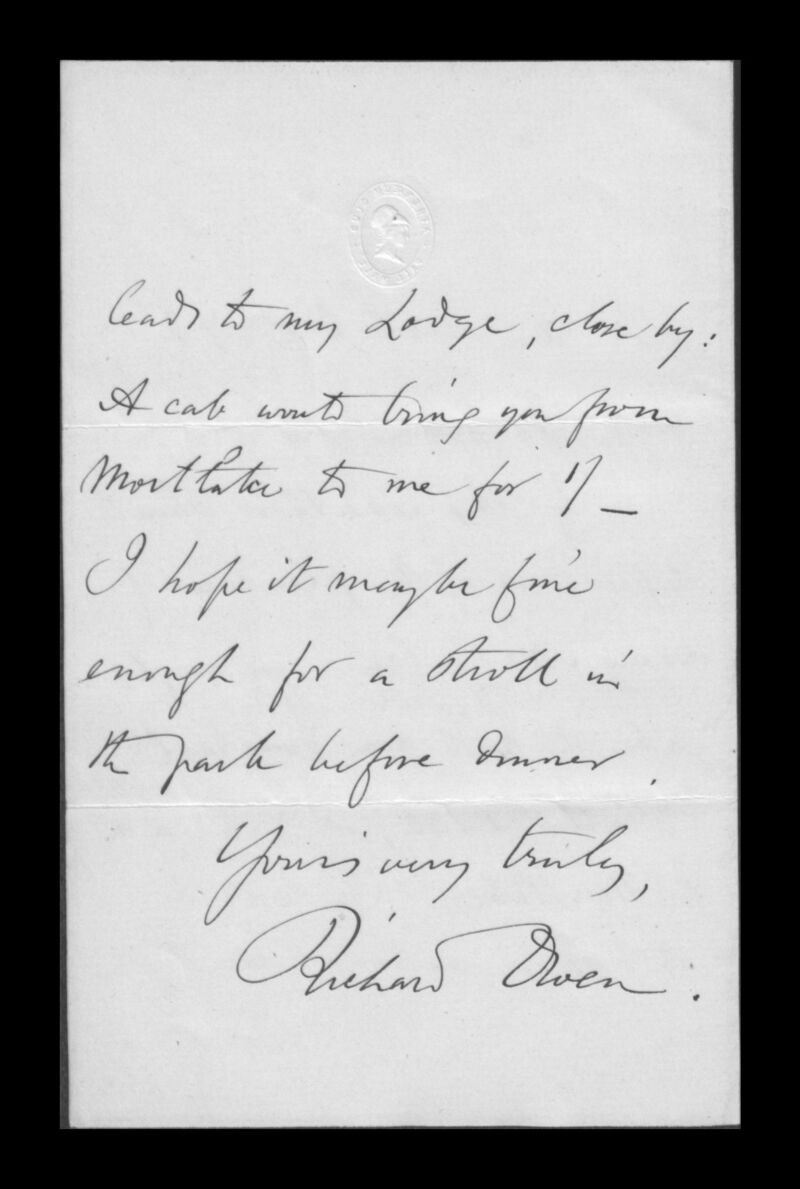 leads to my Lodge, close by:
A cab would bring you from
Mortlake to me for 1/_
I hope it may be fine
enough for a stroll in
the park before dinner.
Yours very truly,
Richard Owen.